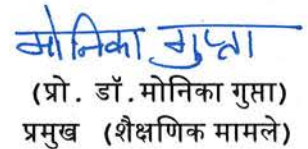 मोनिका गुप्ता
(प्रो. डॉ.मोनिका गुप्ता)
प्रमुख (शैक्षणिक मामले)